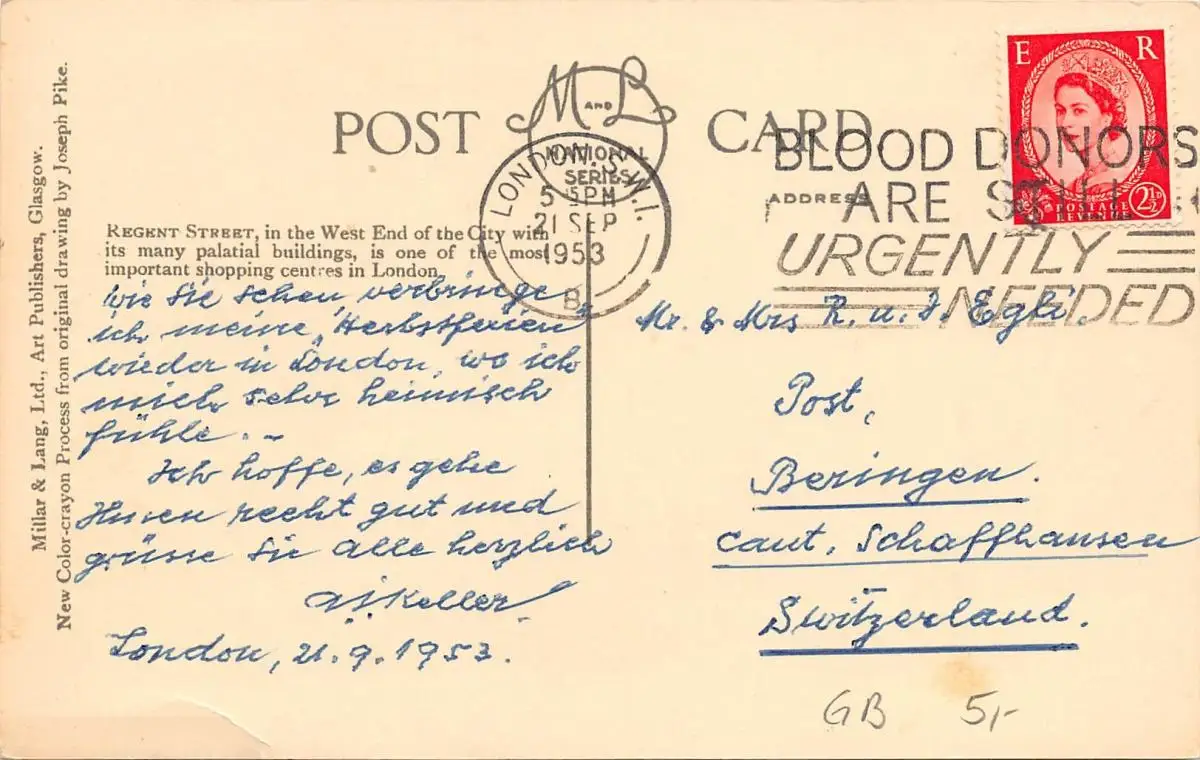 Millar & Lang, Ltd., Art Publishers, Glasgow.
New Color-crayon Process from original drawing by Joseph Pike.
POST CARD
M AND L
NATIONAL
SERIES
LONDON. S.W.1.
5 PM
21 SEP
1953
B
BLOOD DONORS
ARE STILL
URGENTLY
NEEDED
E R
POSTAGE
REVENUE
2½D
ADDRESS
REGENT STREET, in the West End of the City with
its many palatial buildings, is one of the most
important shopping centres in London.
Wie Sie sehen, verbringe
ich meine „Herbstferien“
wieder in London, wo ich
mich sehr heimisch
fühle. –
Ich hoffe, es gehe
Ihnen recht gut und
grüsse Sie alle herzlich
Keller
London, 21.9.1953.
Mr. & Mrs R. u. J. Egli.
Post,
Beringen.
Cant. Schaffhausen
Switzerland.
GB 5,-